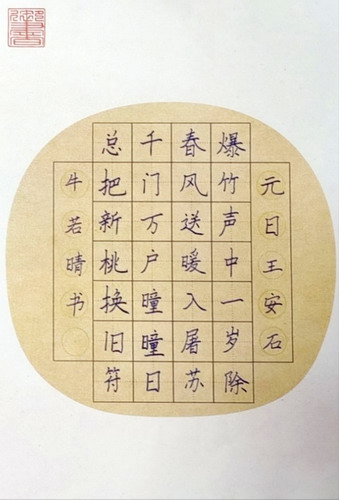 元日王安石
爆竹声中一岁除
春风送暖入屠苏
千门万户曈曈日
总把新桃换旧符
牛若晴书